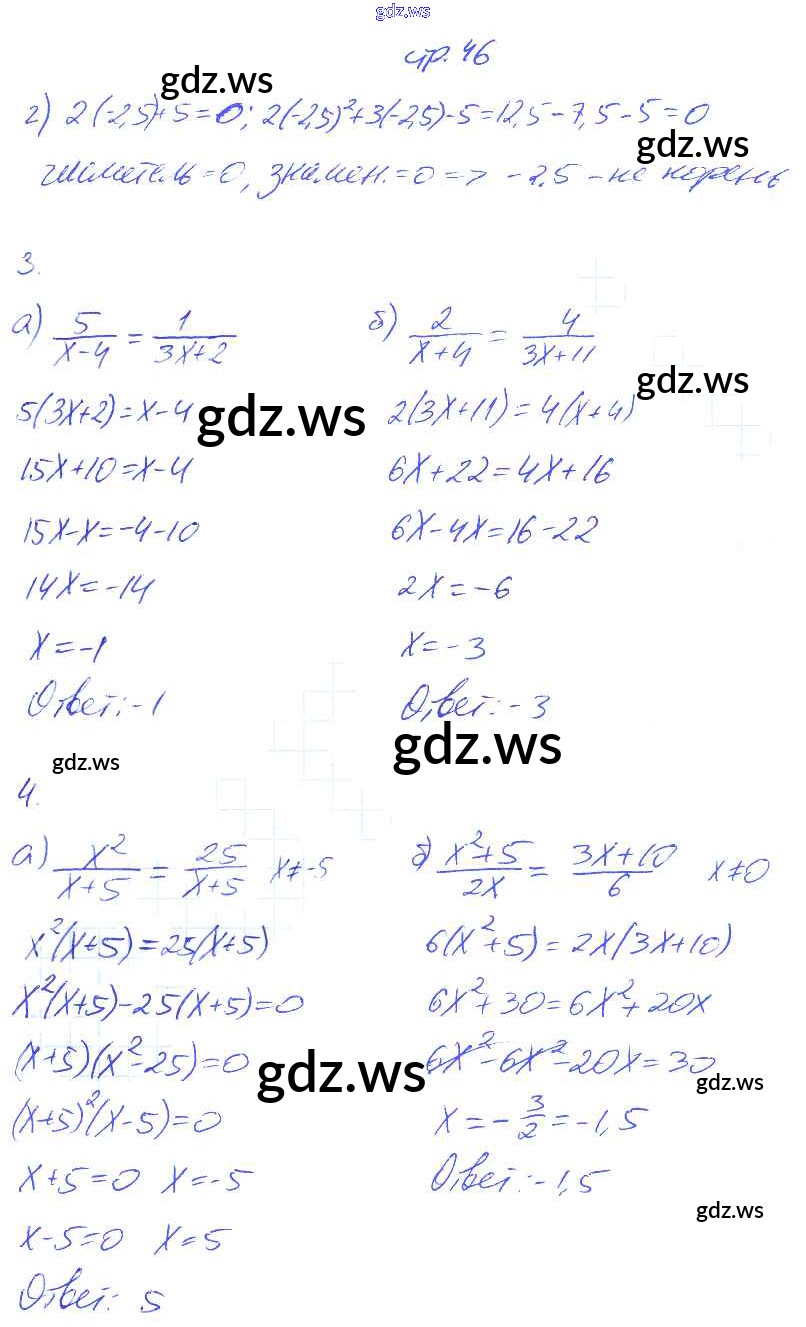 gdz.ws
стр. 46
gdz.ws
г) 2(-2,5)+5=0; 2(-2,5)²+3(-2,5)-5=12,5-7,5-5=0
gdz.ws
числитель=0, знамен.=0 => -2,5 - не корень
3.
а) 5/(x-4) = 1/(3x+2)
5(3x+2)=x-4
15x+10=x-4
15x-x=-4-10
14x=-14
x=-1
Ответ: -1
б) 2/(x+4) = 4/(3x+11)
gdz.ws
gdz.ws
2(3x+11)=4(x+4)
6x+22=4x+16
6x-4x=16-22
2x=-6
x=-3
Ответ: -3
gdz.ws
gdz.ws
4.
а) x²/(x+5) = 25/(x+5) x≠-5
x²(x+5)=25(x+5)
x²(x+5)-25(x+5)=0
(x+5)(x²-25)=0
(x+5)²(x-5)=0
x+5=0 x=-5
x-5=0 x=5
Ответ: 5
gdz.ws
б) (x²+5)/2x = (3x+10)/6 x≠0
6(x²+5)=2x(3x+10)
6x²+30=6x²+20x
6x²-6x²-20x=30
gdz.ws
x=-3/2=-1,5
Ответ: -1,5
gdz.ws